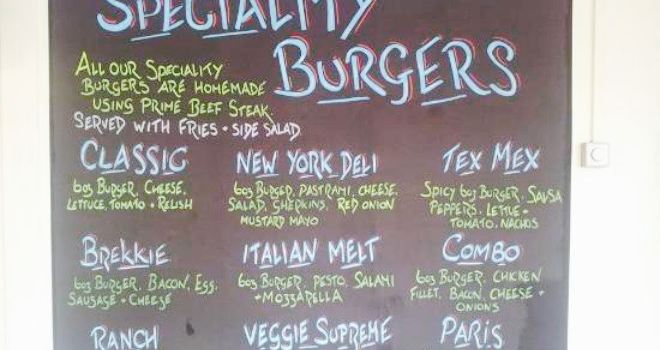 SPECIALITY
BURGERS
ALL OUR SPECIALITY
BURGERS ARE HOMEMADE
USING PRIME BEEF STEAK
SERVED WITH FRIES + SIDE SALAD
CLASSIC
6oz BURGER, CHEESE,
LETTUCE, TOMATO + RELISH
NEW YORK DELI
6oz BURGER, PASTRAMI, CHEESE,
SALAD, GHERKINS, RED ONION
MUSTARD MAYO
TEX MEX
SPICY 6oz BURGER, SALSA
PEPPERS, LETTUE +
TOMATO, NACHOS
BREKKIE
6oz BURGER, BACON, EGG,
SAUSAGE + CHEESE
ITALIAN MELT
6oz BURGER, PESTO, SALAMI
+ MOZZARELLA
COMBO
6oz BURGER, CHICKEN
FILLET, BACON, CHEESE +
ONIONS
RANCH
VEGGIE SUPREME
PARIS